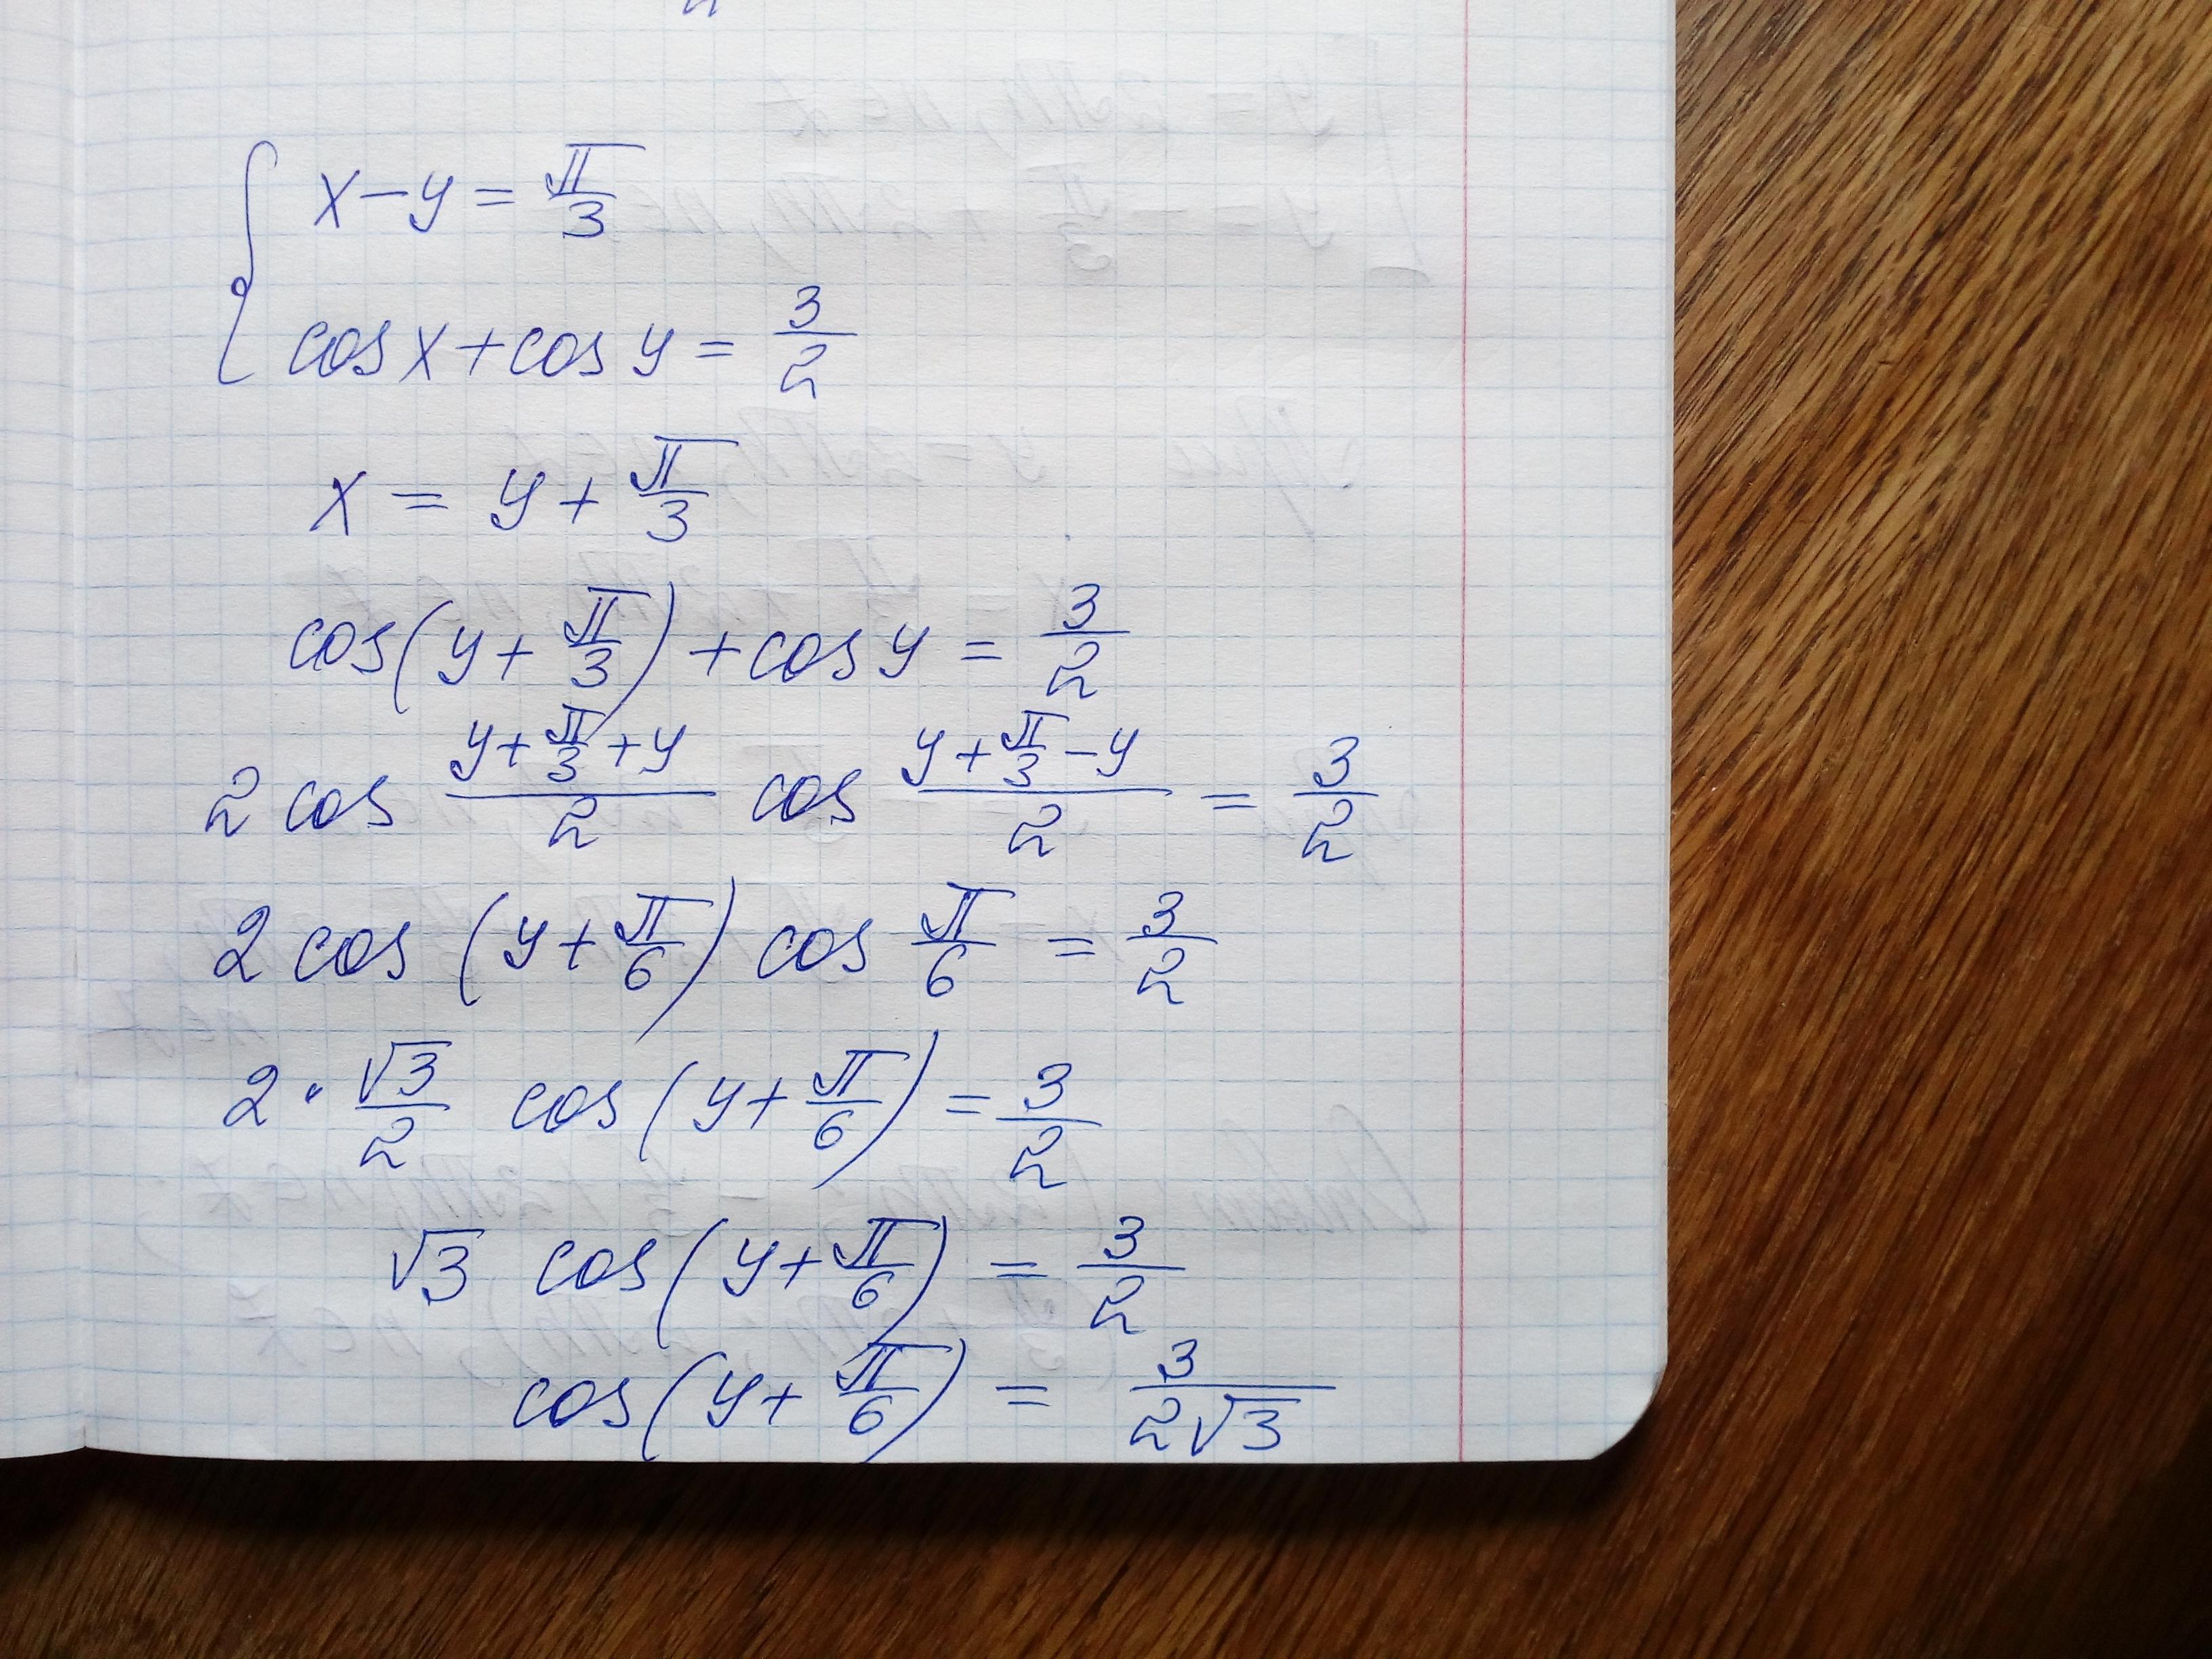 { x - y = π/3
cos x + cos y = 3/2
x = y + π/3
cos(y + π/3) + cos y = 3/2
2 cos (y + π/3 + y)/2 cos (y + π/3 - y)/2 = 3/2
2 cos (y + π/6) cos π/6 = 3/2
2 · √3/2 cos(y + π/6) = 3/2
√3 cos(y + π/6) = 3/2
cos(y + π/6) = 3/(2√3)